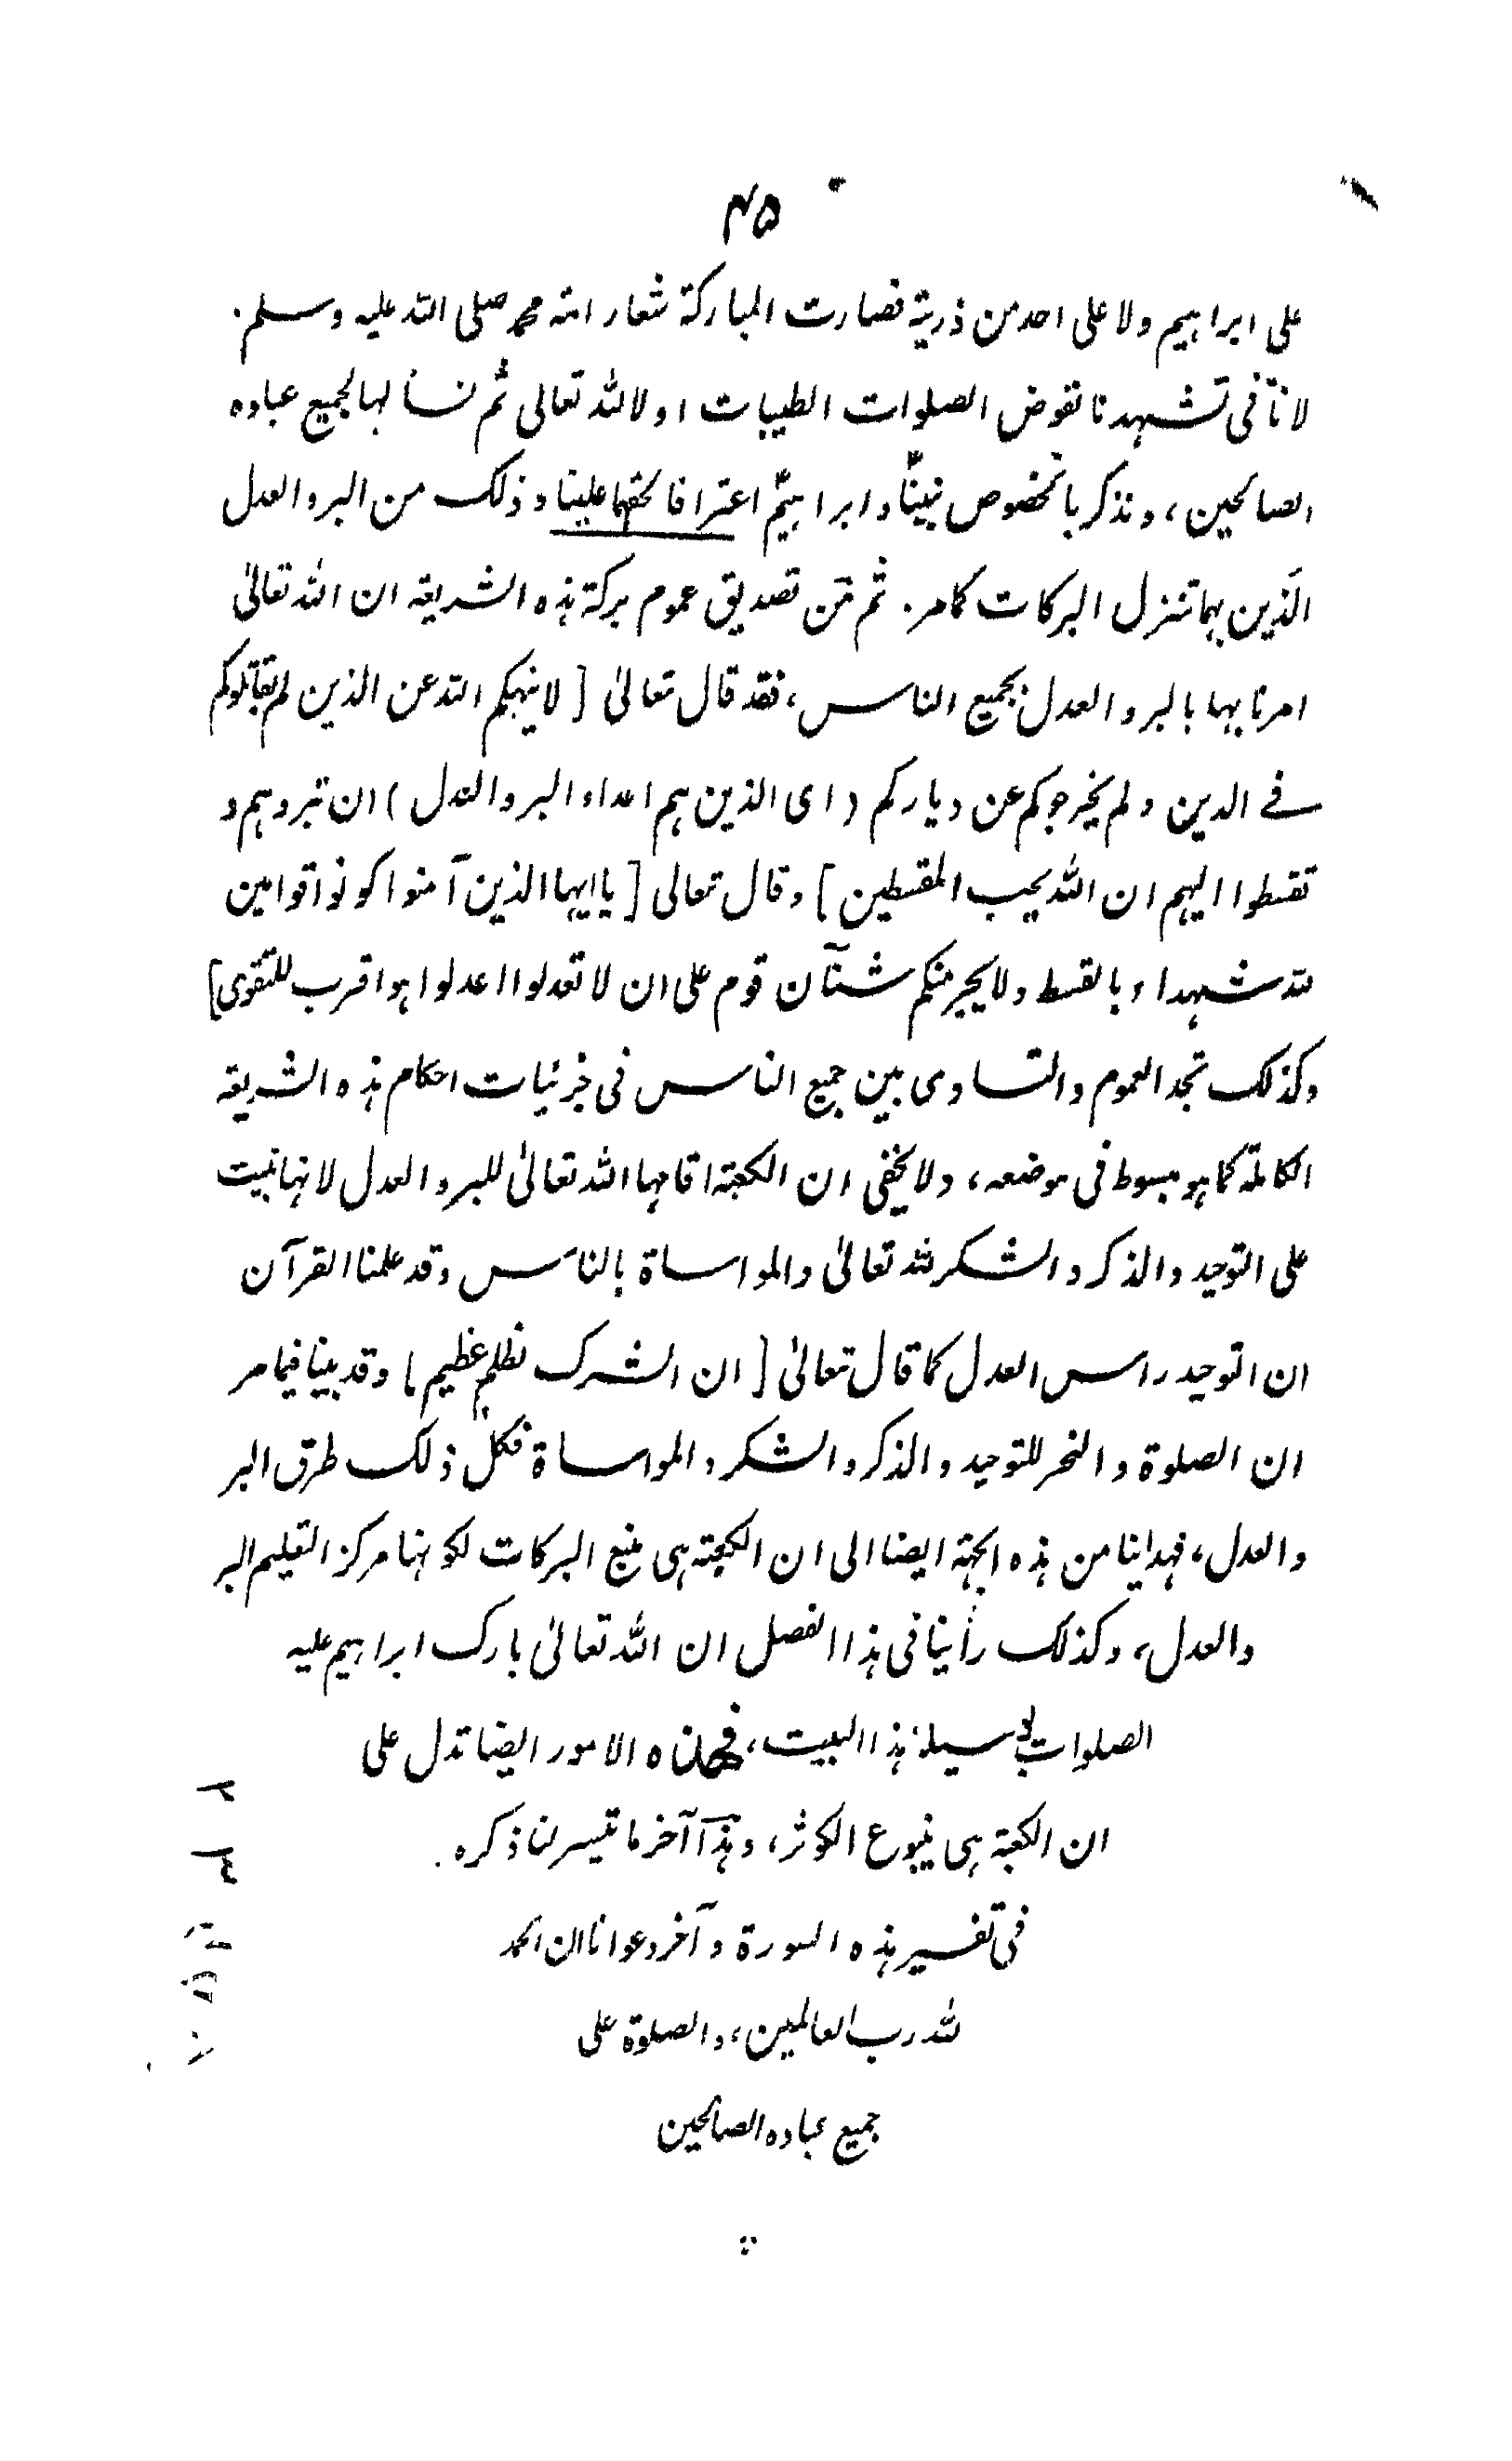 ۴۵
على ابراهيم ولا على احد من ذرية فصارت المباركة شعار امة محمد صلى الله عليه وسلم.
لانّا فى تشهدنا نفوض الصلوات الطيبات اولا لله تعالى ثم نسألها لجميع عباده
الصالحين، ونذكر بالخصوص نبينا وابراهيم اعترافا لحقهما علينا وذلك من البر والعدل
الّذين بهما تنزل البركات كما مر. ثم من تصديق عموم بركة هذه الشريعه ان الله تعالىٰ
امرنا بها بالبر والعدل بجميع الناس، فقد قال تعالىٰ [لا ينهىكم الله عن الذين لم يقاتلوكم
فے الدين ولم يخرجوكم عن دياركم (اى الذين هم اعداء البر والعدل) ان تبروهم و
تقسطوا اليهم ان الله يحب المقسطين] وقال تعالى [يا ايها الذين آمنوا كونوا قوامين
لله شهداء بالقسط ولا يجرمنكم شنآن قوم على ان لا تعدلوا اعدلوا هو اقرب للتقوى]
وكذلك تجد العموم والتساوى بين جميع الناس فى جزئيات احكام هذه الشريعه
الكاملة كما هو مبسوط فى موضعه، ولا يخفى ان الكعبة اقامها الله تعالىٰ للبر والعدل لانها بنيت
على التوحيد والذكر والشكر لله تعالىٰ والمواساة بالناس وقد علمنا القرآن
ان التوحيد راس العدل كما قال تعالىٰ [ان الشرك لظلم عظيم] وقد بينا فيما مر
ان الصلوة والنحر للتوحيد والذكر والشكر والمواساة فكل ذلك طرق البر
والعدل، فهدانيا من هذه الجهة ايضا الى ان الكعبة هى منبع البركات لكونها مركز التعليم البر
والعدل، وكذلك رأينا فى هذا الفصل ان الله تعالىٰ بارك ابراهيم عليه
الصلوات بوسيلة هذا البيت، فهذه الامور ايضا تدل على
ان الكعبة هى ينبوع الكوثر، وهذا آخر ما تيسر لنا ذكره.
فى تفسير هذه السورة وآخر دعوانا ان الحمد
لله رب العالمين، والصلوة على
جميع عباده الصالحين